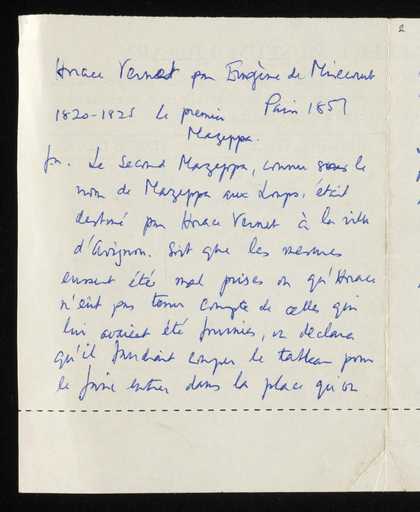 2
Horace Vernet par Eugène de Mirecourt
1820-1825 Le premier Paris 1857
Mazeppa.
fn. Le Second Mazeppa, connu sous le
nom de Mazeppa aux Loups, était
destiné par Horace Vernet à la ville
d'Avignon. Soit que les mesures
eussent été mal prises ou qu'Horace
n'eût pas tenu compte de celles qui
lui avaient été fournies, on déclara
qu'il faudrait couper le tableau pour
le faire entrer dans la place qu'on